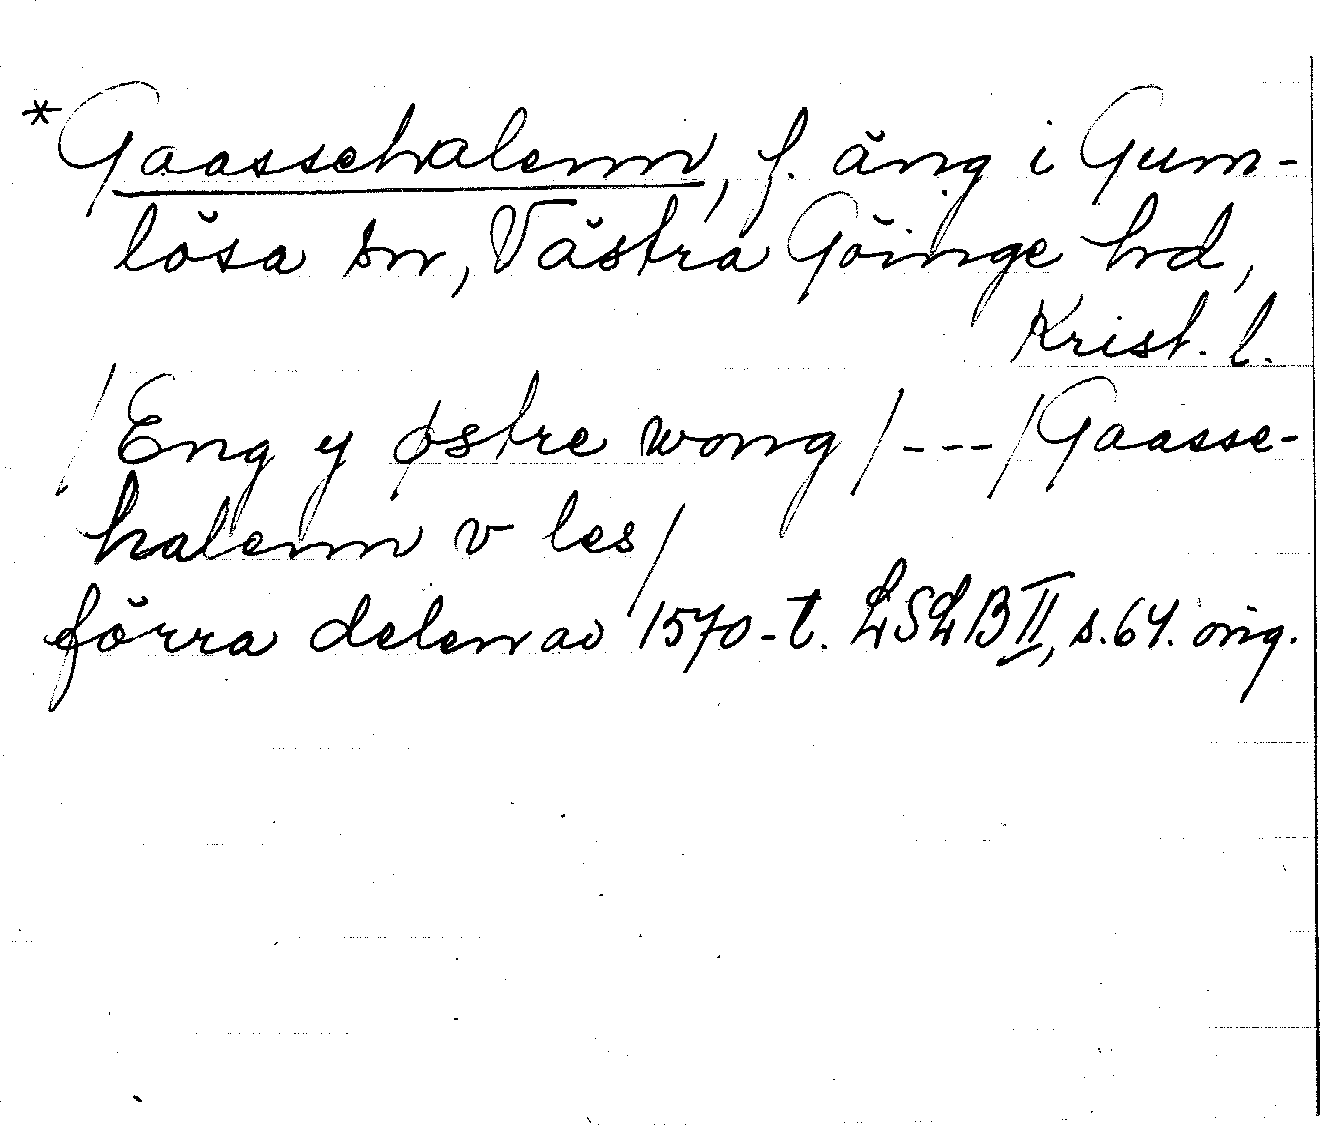 *Gaassehalenn, f. äng i Gum-
lösa sn, Västra Göinge hd,
Krist. l.
/Eng y østre wong/---/Gaasse-
halenn v les/
förra delen av 1570-t. LSLB II, s. 64. orig.